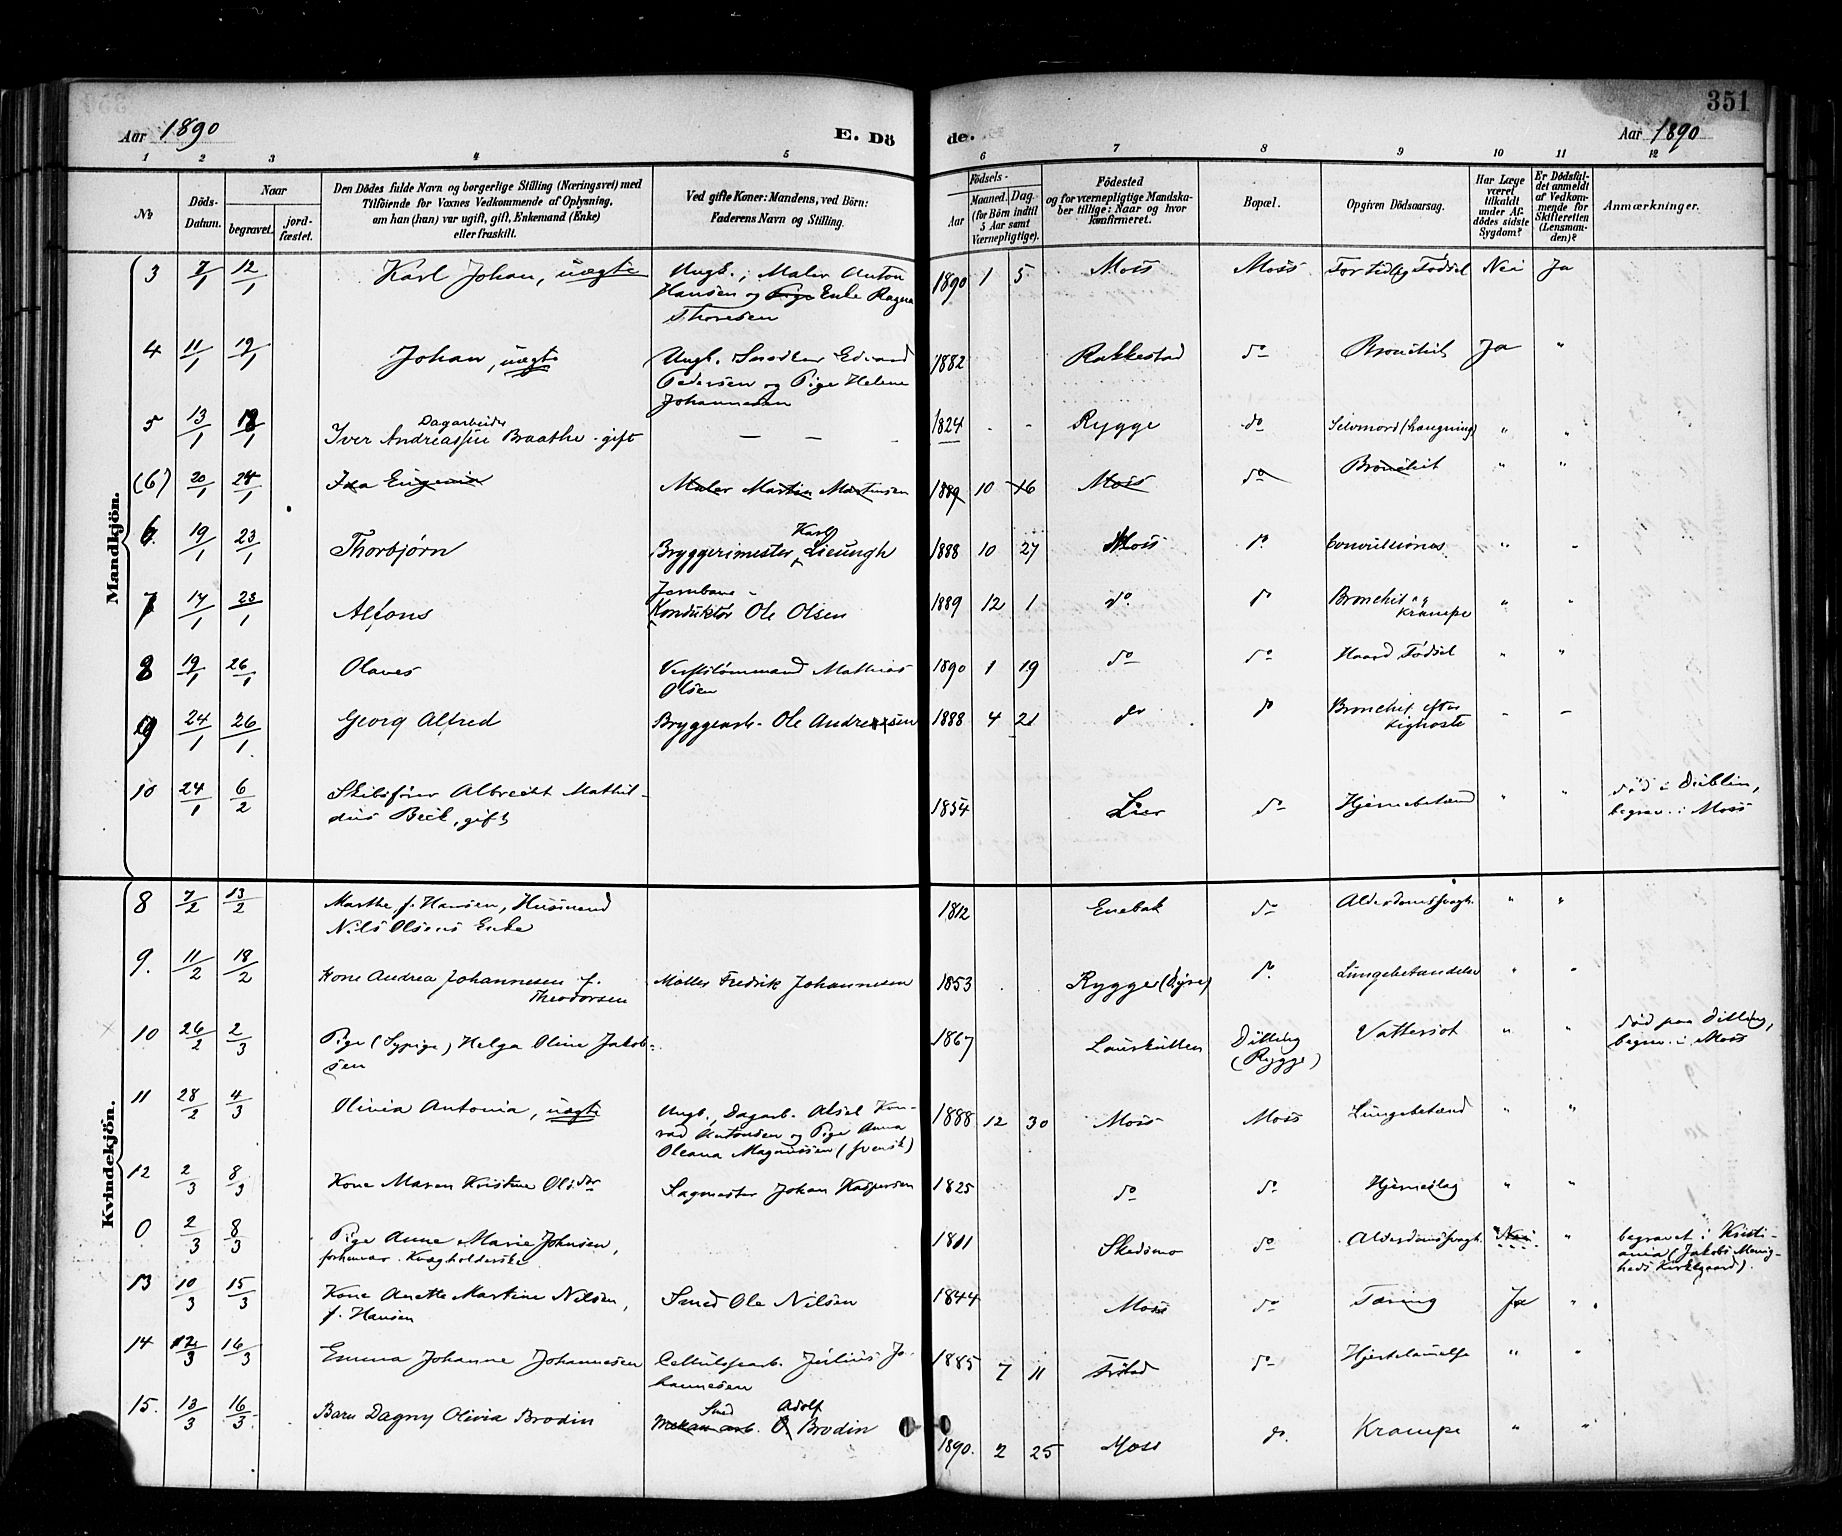 351
Aar 1890
E. Dö
de.
Aar 1890
1 2 3 4 5 6 7 8 9 10 11 12
No
Döds-Datum.
Naar
begravet.
jordfæstet.
Den Dödes fulde Navn og borgerlige Stilling (Næringsvei) med
Tilföiende for Voxnes Vedkommende af Oplysning,
om han (hun) var ugift, gift, Enkemand (Enke)
eller fraskilt.
Ved gifte Koner: Mandens, ved Börn:
Faderens Navn og Stilling.
Födsels-
Aar
Maaned. Dag.
(for Börn indtil
5 Aar samt
Værnepligtige).
Födested
og for værnepligtige Mandska-
ber tillige: Naar og hvor
Konfirmeret.
Bopæl.
Opgiven Dödsaarsag.
Har Læge
været
tilkaldt
under Af-
dödes sidste
Sygdom?
Er Dödsfal-
det anmeldt
af Vedkom-
mende for
Skifteretten
(Lensman-
den)?
Anmærkninger.
Mandkjön.
3 7/1 12/1 Karl Johan, uægte Ungk., Maler Anton 1890 1 5 Moss Moss For tidlig Fødsel Nei Ja
Hansen og Pige Enke Ragna
Thoresen
4 11/1 19/1 Johan, uægte Ungk. Snedker Edvard 1882 Rakkestad do Bronchit Ja "
Pedersen og Pige Helene
Johannesen
Dagarbeider
5 13/1 18/1 Iver Andreassen Braathe gift — — - 1824 - - Rygge do Selvmord (hængning) " "
(6) 20/1 24/1 Ida Eugenia Maler Martin Martinsen 1889 10 16 Moss do Bronchit " "
Karl
6 19/1 23/1 Thorbjørn Bryggerimester Lieungh 1888 10 27 Moss do Convulsiones " "
Jernbane-
7 14/1 23/1 Alfons Konduktør Ole Olsen 1889 12 1 do do Bronchit og " "
Krampe
8 19/1 26/1 Olaves Verkstømmand Mathias 1890 1 19 do do Haard Fødsel " "
Olsen
9 24/1 26/1 Georg Alfred Bryggearb. Ole Andreassen 1888 4 21 do do Bronchit efter - -
Kighoste
10 24/1 6/2 Skibsfører Albrecht Mathil- 1854 Lier do Hjernebetænd " " død i Dublin,
dius Beck, gift begrav. i Moss
Kvindekjön.
8 7/2 13/2 Marthe, f. Hansen, Husmand 1812 Enebak do Alderdomssvagh. " "
Nils Olsens Enke
9. 11/2 18/2 Kone Andrea Johannesen f. Møller Fredrik Johannesen 1853 Rygge do Lungebetændelse " "
Theodorsen
10 26/2 2/3 Pige (Sypige) Helga Oline Jakob- 1867 Laurkullen Dilling Vattersot " " død paa Dilling,
sen (Rygge) begrav. i Moss
11 28/2 4/3 Olivia Antonia, uægte Ungk., Dagarb. Aksel Kon- 1888 12 30 Moss Moss Lungebetænd " "
rad Antonsen og Pige Anna
Oleana Magnussen (svensk)
12 2/3 8/3 Kone Maren Kristine Olsdtr Sagmester Johan Kaspersen 1825 do do Hjerneslag " "
0 2/3 8/3 Pige Anne Marie Johnsen, 1811 Skedsmo do Alderdomssvagh. Nei " begravet i Kristi-
forhenvær. Kvægholderske ania (Jakobs Menig-
heds Kirkegaard).
13 10/3 15/3 Kone Anette Martine Nilsen, Smed Ole Nilsen 1844 Moss do Tæring Ja "
f. Hansen
14 12/3 16/3 Emma Johanne Johannesen Cellulosearb. Julius Jo- 1885 7 11 do Hjertelammelse " "
hannesen
Smed Adolf
15. 13/3 16/3 Barn Dagny Olivia Brodin Mekan arb. O. Brodin 1890. 2 25 Moss do. Krampe " "